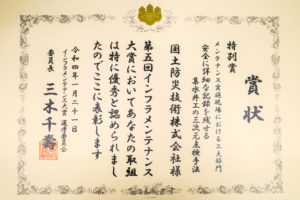 賞状
特別賞
メンテナンス実施現場における工夫部門
安全に詳細な記録を残せる
集水井工の三次元点検手法
国土防災技術株式会社様
第五回インフラメンテナンス
大賞においてあなたの取組
は特に優秀と認められまし
たのでここに表彰します
令和四年一月二十一日
インフラメンテナンス大賞 選考委員会
委員長 三木千壽